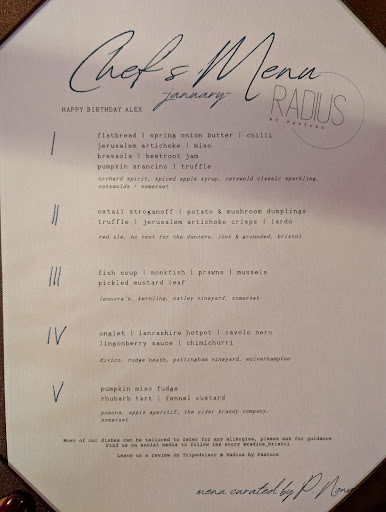 Chef's Menu
-january-
RADIUS
BY PASTURE
HAPPY BIRTHDAY ALEX
I
flatbread | spring onion butter | chilli
jerusalem artichoke | miso
bresaola | beetroot jam
pumpkin arancino | truffle
orchard spirit, spiced apple syrup, cotswold classic sparkling,
cotswolds + somerset
II
oxtail stroganoff | potato & mushroom dumplings
truffle | jerusalem artichoke crisps | lardo
red ale, no rest for the dancers, lost & grounded, bristol
III
fish soup | monkfish | prawns | mussels
pickled mustard leaf
leonora's, kernling, oatley vineyard, somerset
IV
onglet | lancashire hotpot | cavolo nero
lingonberry sauce | chimichurri
divico, rudge heath, pattingham vineyard, wolverhampton
V
pumpkin miso fudge
rhubarb tart | fennel custard
pomona, apple aperitif, the cider brandy company,
somerset
Most of our dishes can be tailored to cater for any allergies, please ask for guidance
Find us on social media to follow the story @radius_bristol
Leave us a review on Tripadvisor @ Radius by Pasture
menu curated by P.